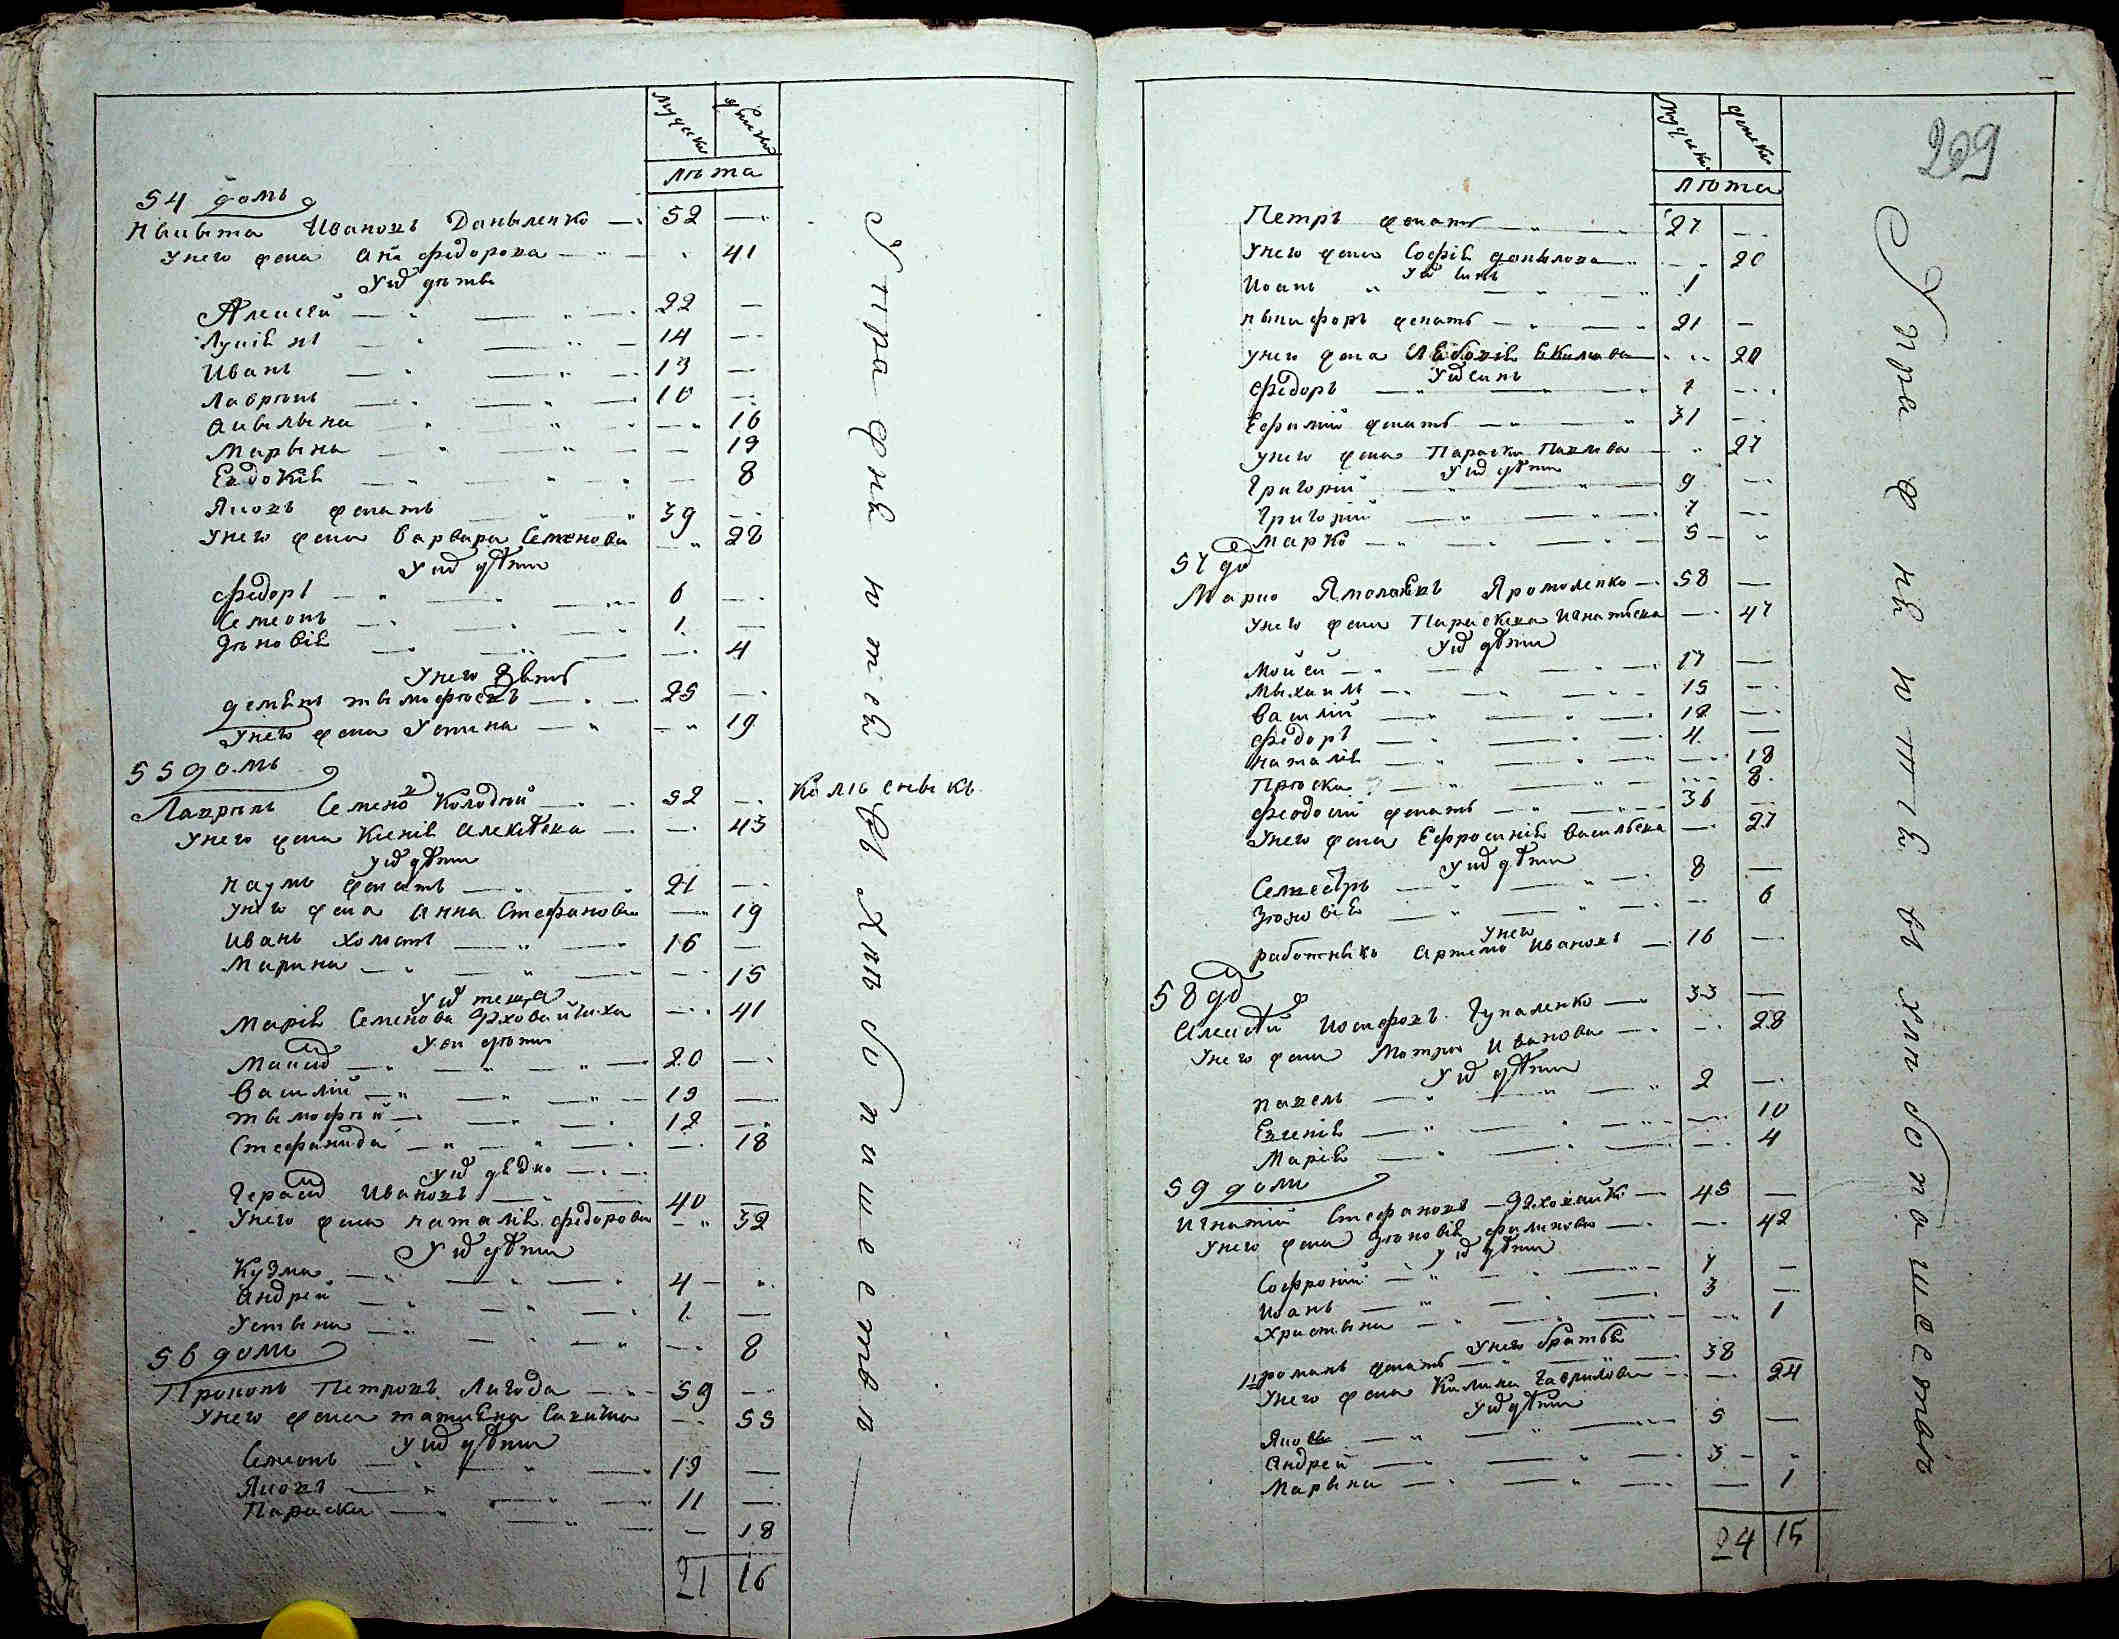 мужеск
женска
лѣта
54 домъ
Никыта Ивановъ Даныленко 52
Унего жена Анна Федорова 41
Уих дѣты
Алексѣй 22
Лукіянъ 14
Иванъ 13
Лаврѣнъ 10
Акылына 16
Марына 19
Евдокія 8
Яковъ женатъ 39
Унего жена Варвара Семенова 28
Уих дѣти
Федоръ 6
Семеонъ 1
Зѣновія 4
Унего зять
Демянъ Тымофѣевъ 25
Унего жена Устина 19
55 домъ
Лаврѣнъ Семеновъ Колодѣй 52
Унего жена Ксенія Алексѣева 43
Уих дѣти
Наумъ женатъ 21
Унего жена Анна Стефанова 19
Иванъ холостъ 16
Марина 15
Уих теща
Марія Семенова 41
Уеи дѣти
20
Василій 13
Тымофѣй 12
Стефанида 18
Уих дядко
Герасим Ивановъ 40
Унего жена Наталія Федорова 32
Уих дѣти
Кузма 4
Андрей 1
Устына 8
56 домъ
Прокопъ Петровъ Лагода 59
Унего жена Татияна Савична 55
Уих дѣти
Семеонъ 13
Яковъ 11
Параска 18
21 16
У пра жне нтіе
Колѣсныкъ
въ хлѣбопашествѣ
мужеск
женска
лѣта
209
Петръ женатъ 27
Унего жена Софія Данылова 20
Уих сынъ
Иоанъ 1
Ныкифоръ женатъ 21
Унего жена 20
Уих синъ
Федоръ 1
Ефимій женатъ 31
Унего жена Параска Павлова 27
Уих дѣти
Григорій 9
Григорій 7
Марко 5
57 до
Марко Ярмоленко 58
Унего жена Параскева Игнатѣева 47
Уих дѣти
Мойсей 17
Мыхаилъ 15
Василій 12
Федоръ 4
Наталія 18
Прѣска 8
Феодосій женатъ 36
Унего жена Ефросинія Васильева 27
Уих дѣти
Селвестръ 8
Зѣновія 6
Унего
работныкъ Артемъ Ивановъ 16
58 до
Алексѣй Иосифовъ Гупаленко 33
Унего жена Мотря Иванова 28
Уих дѣти
Павелъ 2
Евгенія 10
Марія 4
59 домъ
Игнатій Стефановъ 45
Унего жена Зѣновія Филипова 42
Уих дѣти
Софроній 7
Иоанъ 3
Христына 1
Унего братья
Романъ женатъ 38
Унего жена Калина Гаврилова 24
Уих дѣти
Яковъ 5
Андрей 3
Марына 1
24 15
Упражненіе въ хлѣбопашествѣ